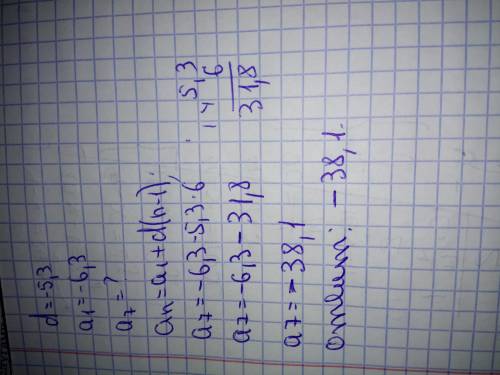 d=-5,3
a₁=-6,3
a₇=?
an=a₁+d(n-1);
a₇=-6,3-5,3·6
a₇=-6,3-31,8
a₇=-38,1
ответ: -38,1.
5,3
6
31,8